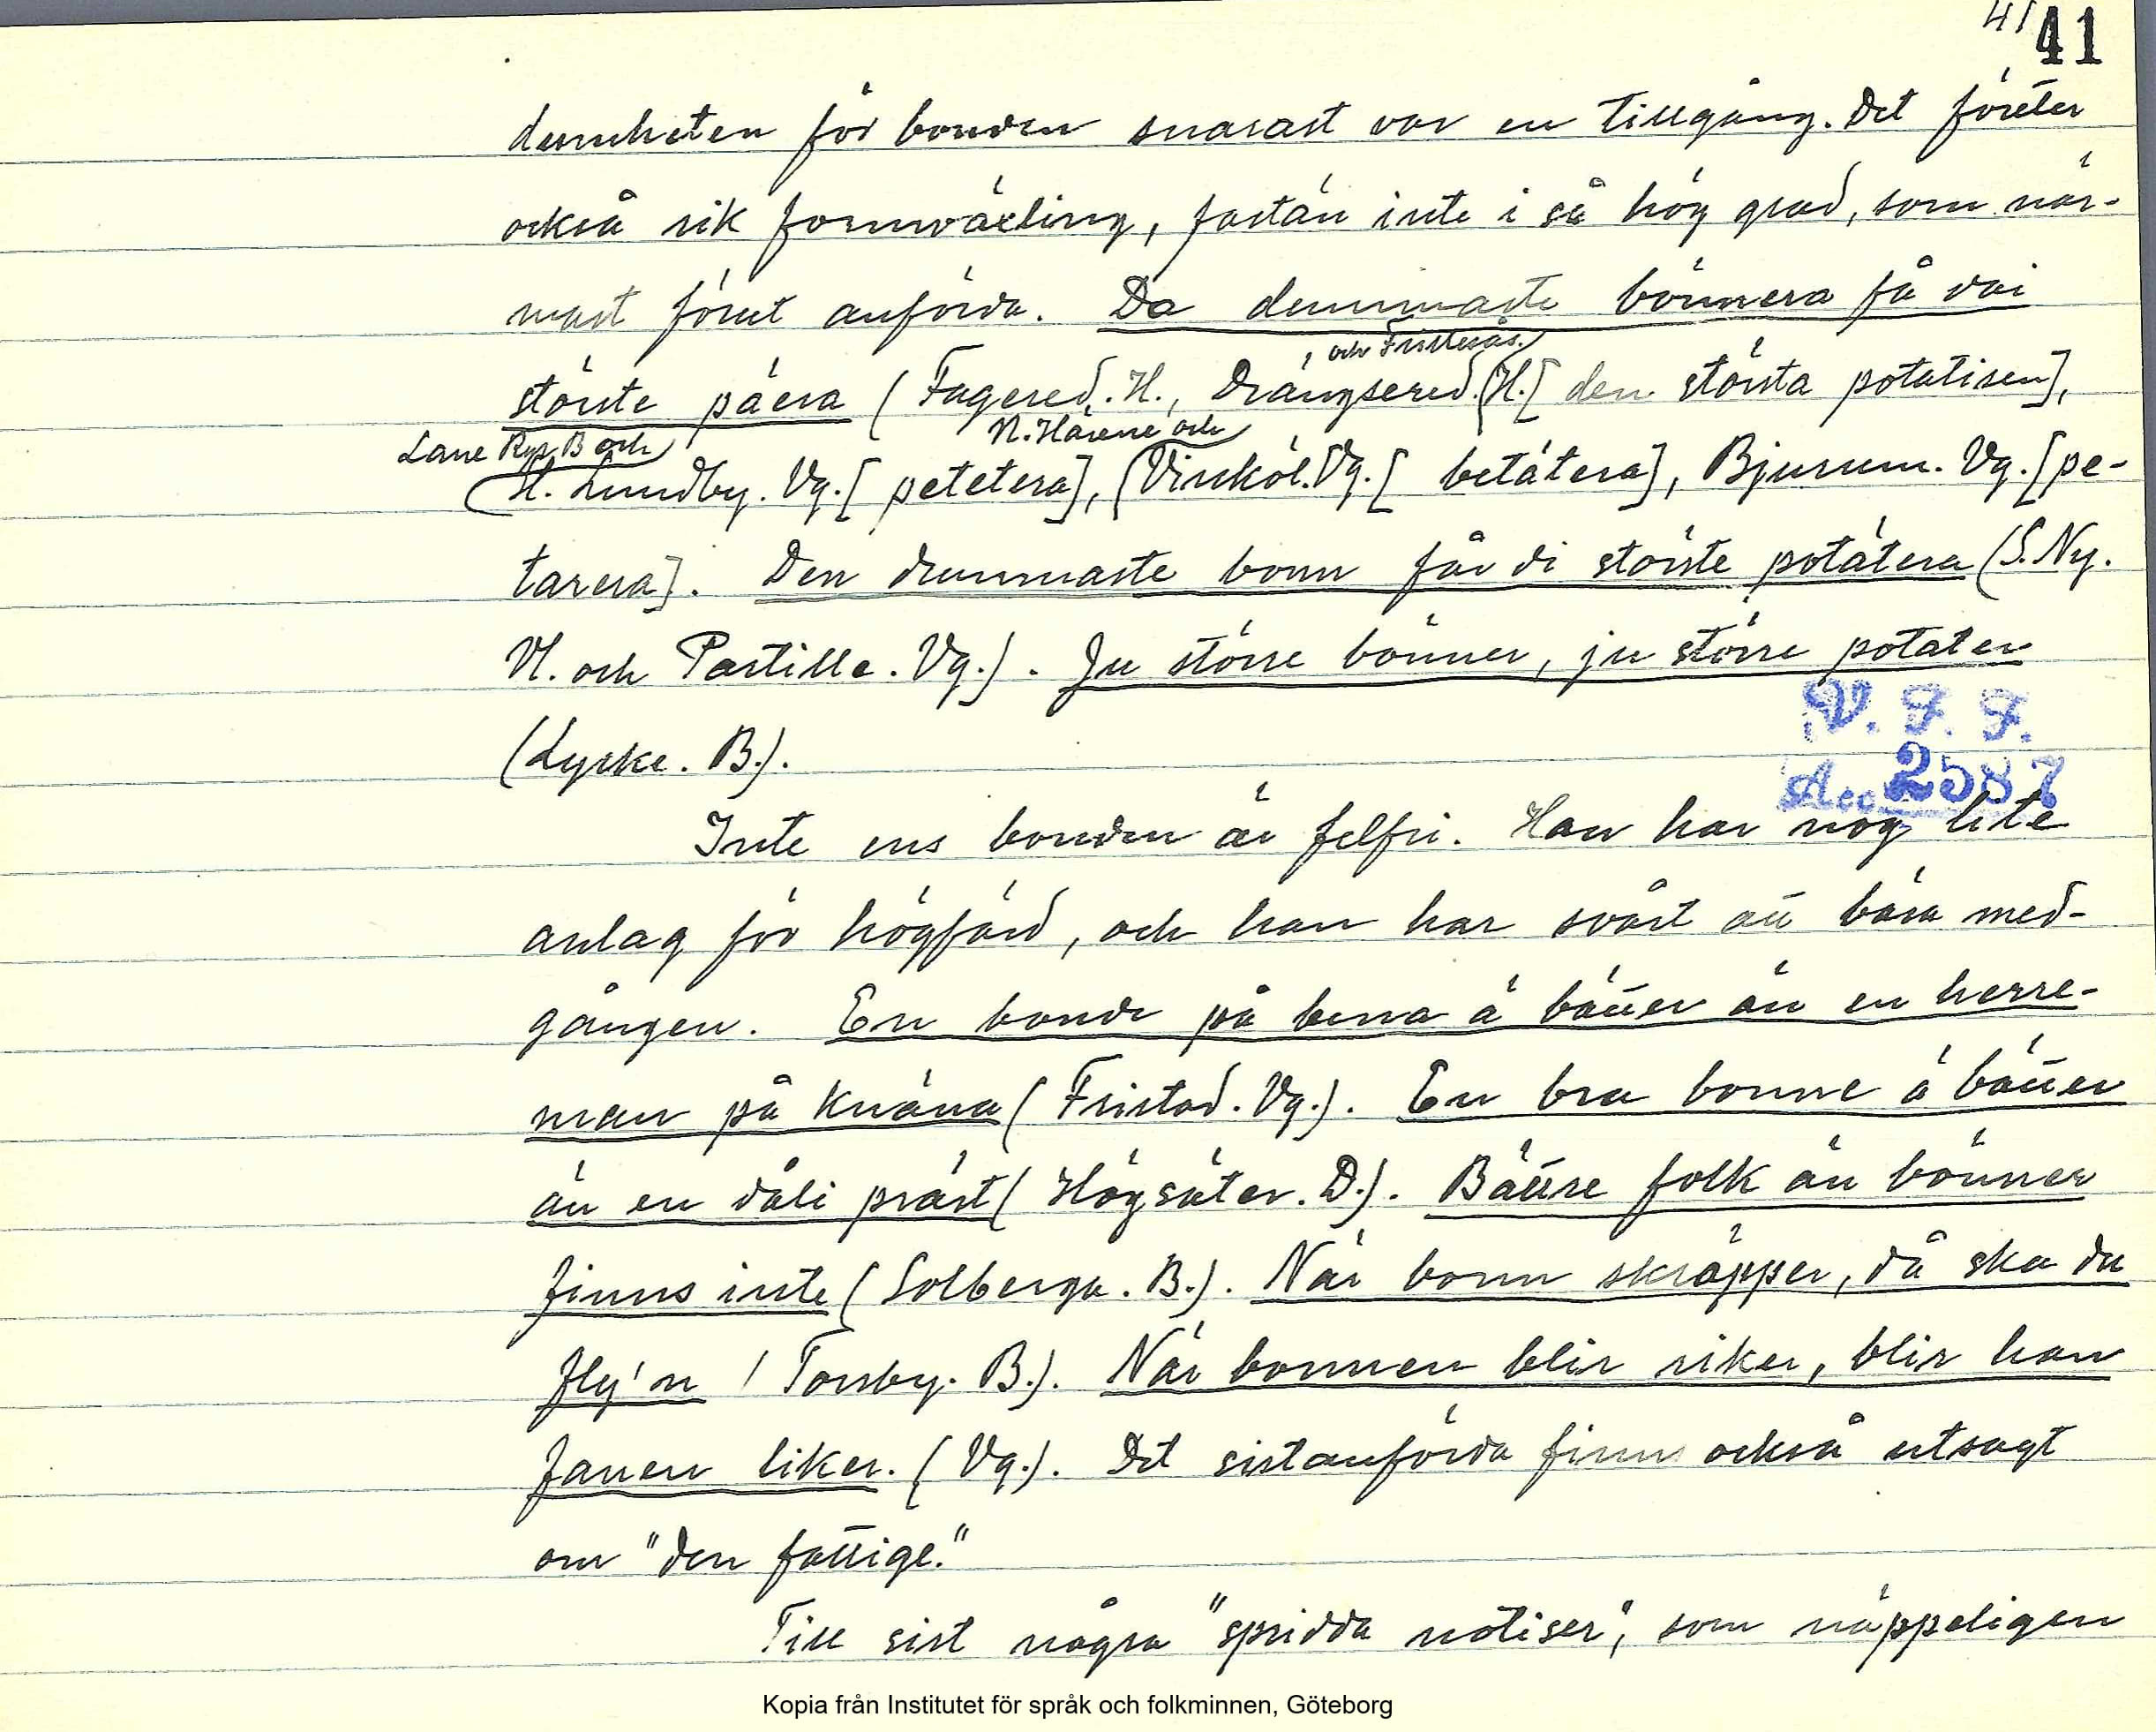 41 41
dumheten för bonden snarast var en tillgång. Det företer
också rik formväxling, fastän inte i så hög grad, som när-
mast förut anförda. Da dummaste bönnera få dai
och Frillesås.
störste päera (Fagered. H., Drängsered. H. [den största potatisen],
Lane Ryr. B och N. Härene och
St. Lundby. Vg. [petetera], Vinköl. Vg. [betätera], Bjurum. Vg. [pe-
tarera]. Den dummaste bonn får di störste potätera (S. Ny.
Vl. och Partille. Vg.). Ju större bönner, ju större potater
(Lycke. B.).
V. F. F.
Acc 2587
Inte ens bonden är felfri. Han har nog lite
anlag för högfärd, och han har svårt att bära med-
gången. En bonde på bena ä bätter än en herre-
man på knäna (Fristad. Vg.). En bra bonne ä bätter
än en dåli präst (Högsäter. D.). Bättre folk än bönner
finns inte (Solberga. B.). När bonn skräpper, då ska du
fly'n (Torsby. B.). När bonnen blir riker, blir han
fanen liker. (Vg.). Det sistanförda finns också utsagt
om "den fattige."
Till sist några "spridda notiser", som näppeligen
Kopia från Institutet för språk och folkminnen, Göteborg